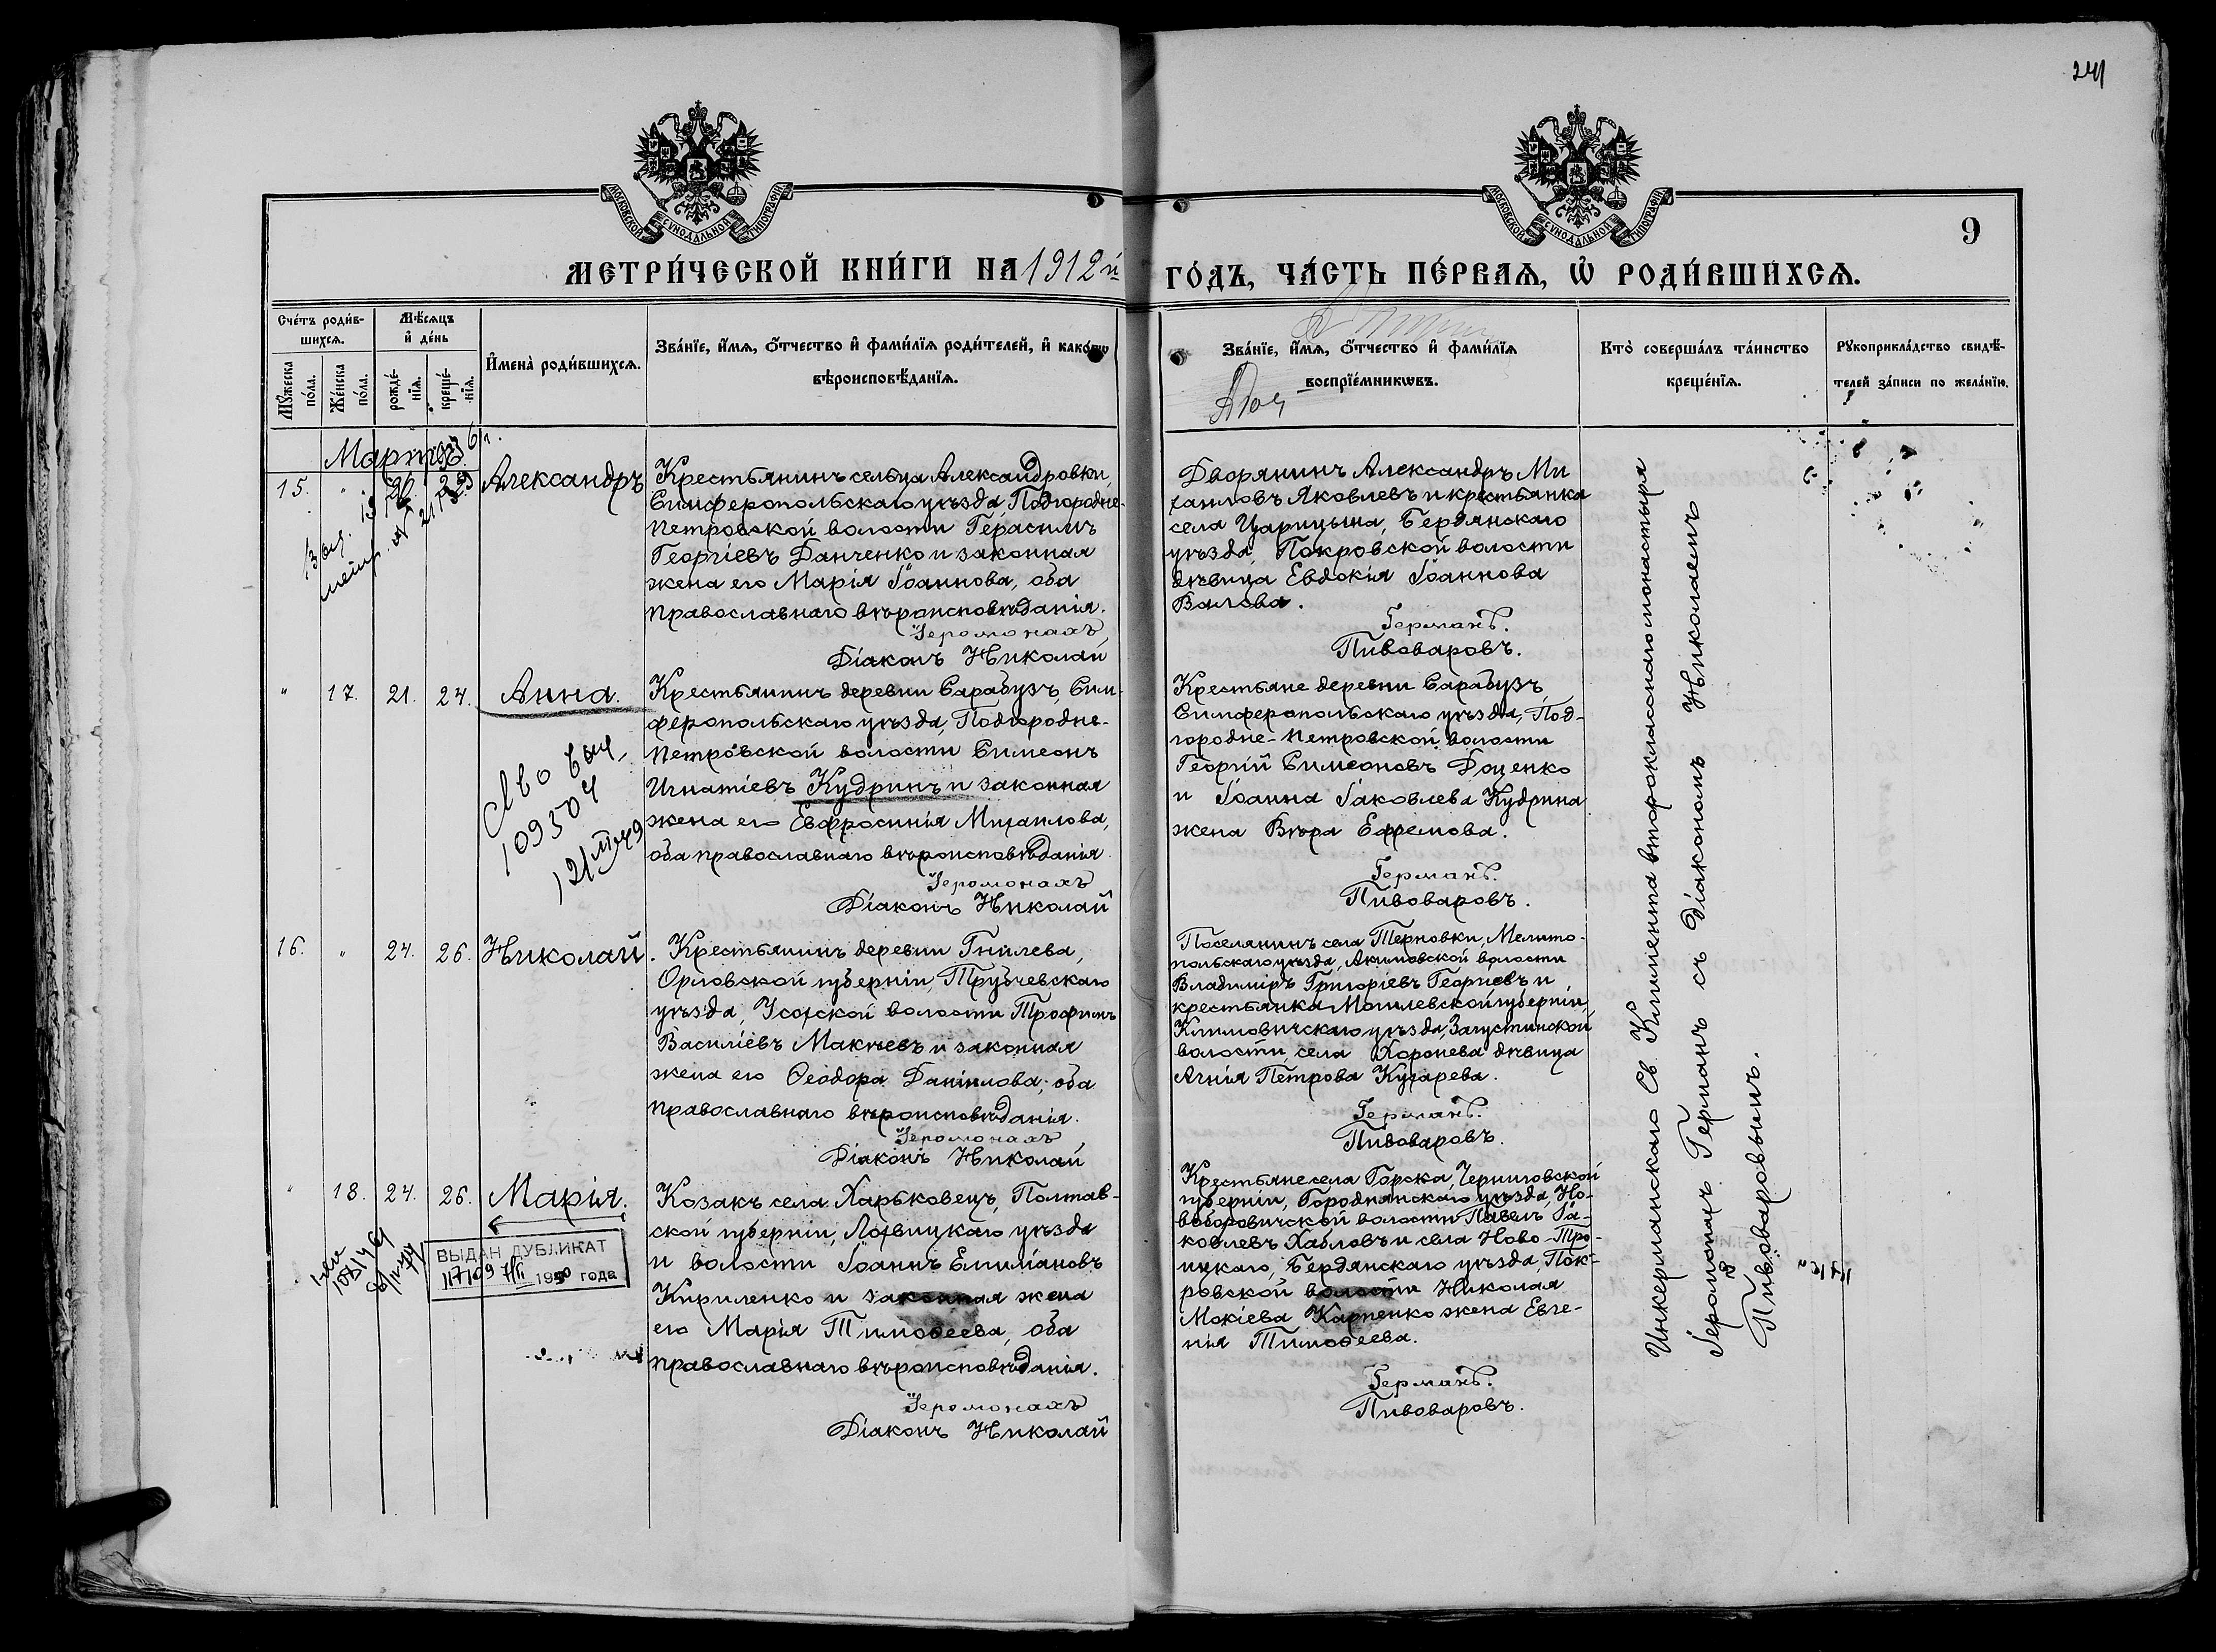 241
МОСКОВСКОЙ СѴНОДАЛЬНОЙ ТИПОГРАФІИ
МОСКОВСКОЙ СѴНОДАЛЬНОЙ ТИПОГРАФІИ
9
МЕТРИ́ЧЕСКОЙ КНИ́ГИ НА 1912 й
ГО́ДЪ, ЧА́СТЬ ПЕ́РВАѦ, Ѡ РОДИ́ВШИХСѦ.
Сче́тъ роди́в-
шихсѧ.
Мꙋ́жеска по́ла.
Же́нска по́ла.
Мѣ́сѧцъ
и҆ де́нь
рожде́-
нїѧ.
креще́-
нїѧ.
И҆мена̀ роди́вшихсѧ.
Зва́нїе, и҆́мѧ, ѻ҆́тчество и҆ фами́лїѧ роди́телей, и҆ како́гѡ
вѣроисповѣ́данїѧ.
Зва́нїе, и҆́мѧ, ѻ҆́тчество и҆ фами́лїѧ
воспрїе́мникѡвъ.
Кто̀ соверша́лъ та́инство
креще́нїѧ.
Рꙋкоприкла́дство свидѣ́-
телей за́писи по жела́нїю.
Мартъ
15. " 20 23 Александръ
Крестьянинъ сельца Александровки,
Симферопольскаго уѣзда, Подгородне-
Петровской волости Герасимъ
Георгіевъ Данченко и законная
жена его Марія Іоаннова, оба
православнаго вѣроисповѣданія.
Іеромонахъ
Діаконъ Николай
Дворянинъ Александръ Ми
хаиловъ Яковлевъ и крестьянка
села Царицына, Бердянскаго
уѣзда, Покровской волости
дѣвица Евдокія Іоаннова
Валова.
Германъ.
Пивоваровъ.
" 17. 21. 24. Анна.
Крестьянинъ деревни Сарабузъ, Сим-
феропольскаго уѣзда, Подгородне-
Петровской волости Симеонъ
Игнатіевъ Кудринъ и законная
жена его Евфросинія Михаилова,
оба православнаго вѣроисповѣданія.
Іеромонахъ
Діаконъ Николай
109504
Крестьяне деревни Сарабузъ
Симферопольскаго уѣзда, Под-
городне-Петровской волости
Георгій Симеоновъ Доценко
и Іоанна Іаковлева Кудрина
жена Вѣра Ефремова.
Германъ.
Пивоваровъ.
16. " 24. 26. Николай.
Крестьянинъ деревни Гнилева,
Орловской губерніи, Трубчевскаго
уѣзда, Усохской волости Трофимъ
Василіевъ Макѣевъ и законная
жена его Ѳеодора Даніилова; оба
православнаго вѣроисповѣданія.
Іеромонахъ
Діаконъ Николай
Поселянинъ села Терновки, Мелито-
польскаго уѣзда, Акимовской волости
Владиміръ Григоріевъ Георгіевъ и
крестьянка Могилевской губерніи,
Климовичскаго уѣзда, Загустинской
волости, села Хоронева дѣвица
Агнія Петрова Кухарева.
Германъ.
Пивоваровъ.
" 18. 24. 26. Марія.
ВЫДАН ДУБЛИКАТ
1950 года
Козакъ села Харьковецъ, Полтав-
ской губерніи, Лохвицкаго уѣзда
и волости Іоаннъ Емиліановъ
Кириленко и законная жена
его Марія Тимоѳеева, оба
православнаго вѣроисповѣданія.
Іеромонахъ
Діаконъ Николай
Крестьяне села Горска, Черниговской
губерніи, Городнянскаго уѣзда, Но-
воборовичской волости Павелъ Іа-
ковлевъ Хабловъ и села Ново-Тро-
ицкаго, Бердянскаго уѣзда, Пок-
ровской волости Николая
Мокіева Карпенко жена Евге-
нія Тимоѳеева.
Германъ.
Пивоваровъ.
Инкерманскаго Св. Климента второкласснаго монастыря
Іеромонахъ Германъ съ Діакономъ Николаемъ
Пивоваровымъ.